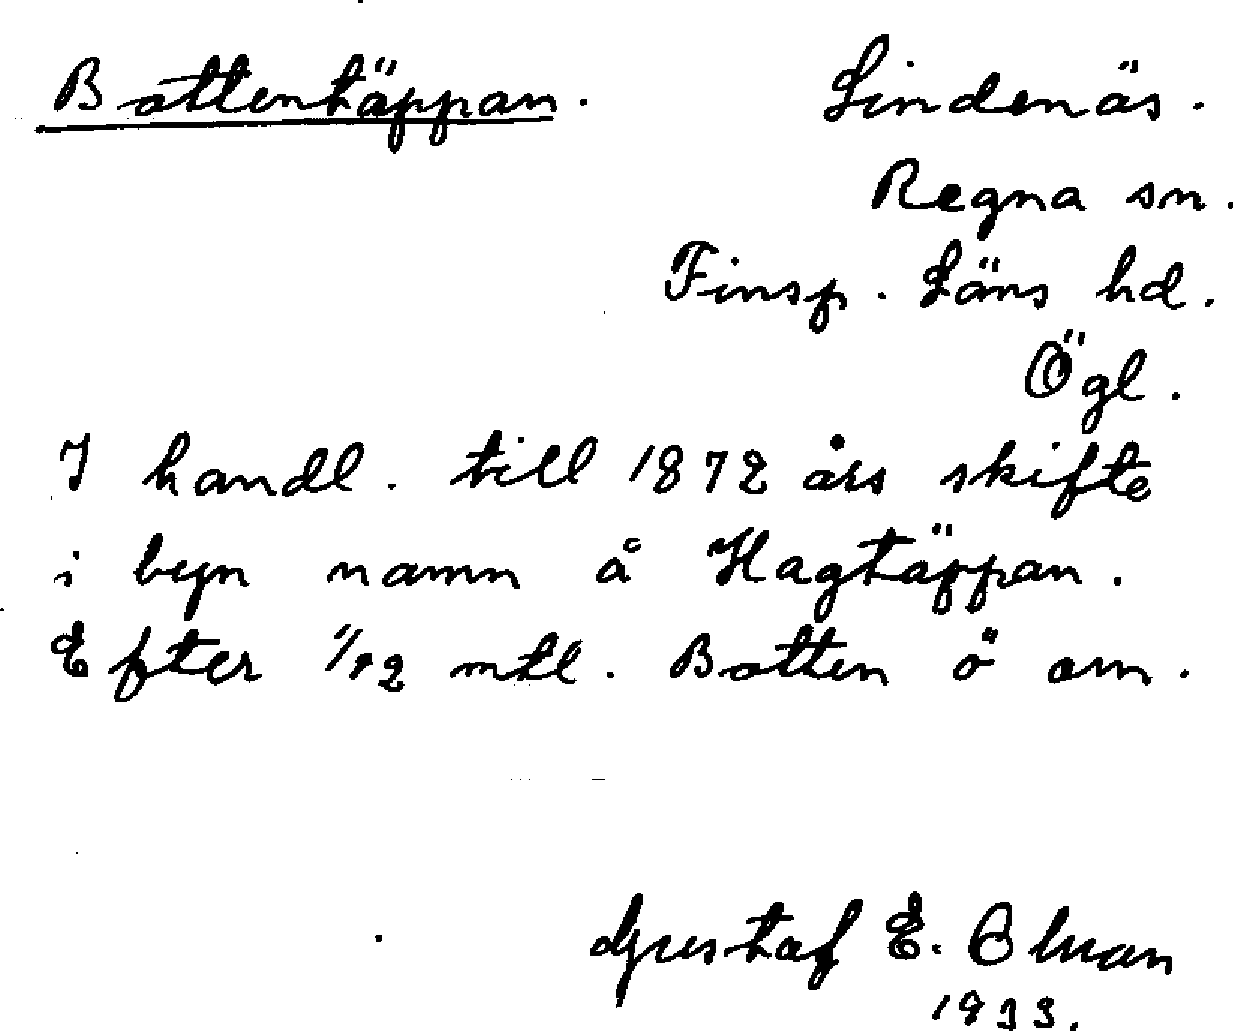 Bottentäppan. Lindenäs.
Regna sn.
Finsp. Läns hd.
Ögl.
I handl. till 1872 års skifte
i byn namn å Hagtäppan.
Efter 1/12 mtl. Botten ö om.
Gustaf E.
1933.